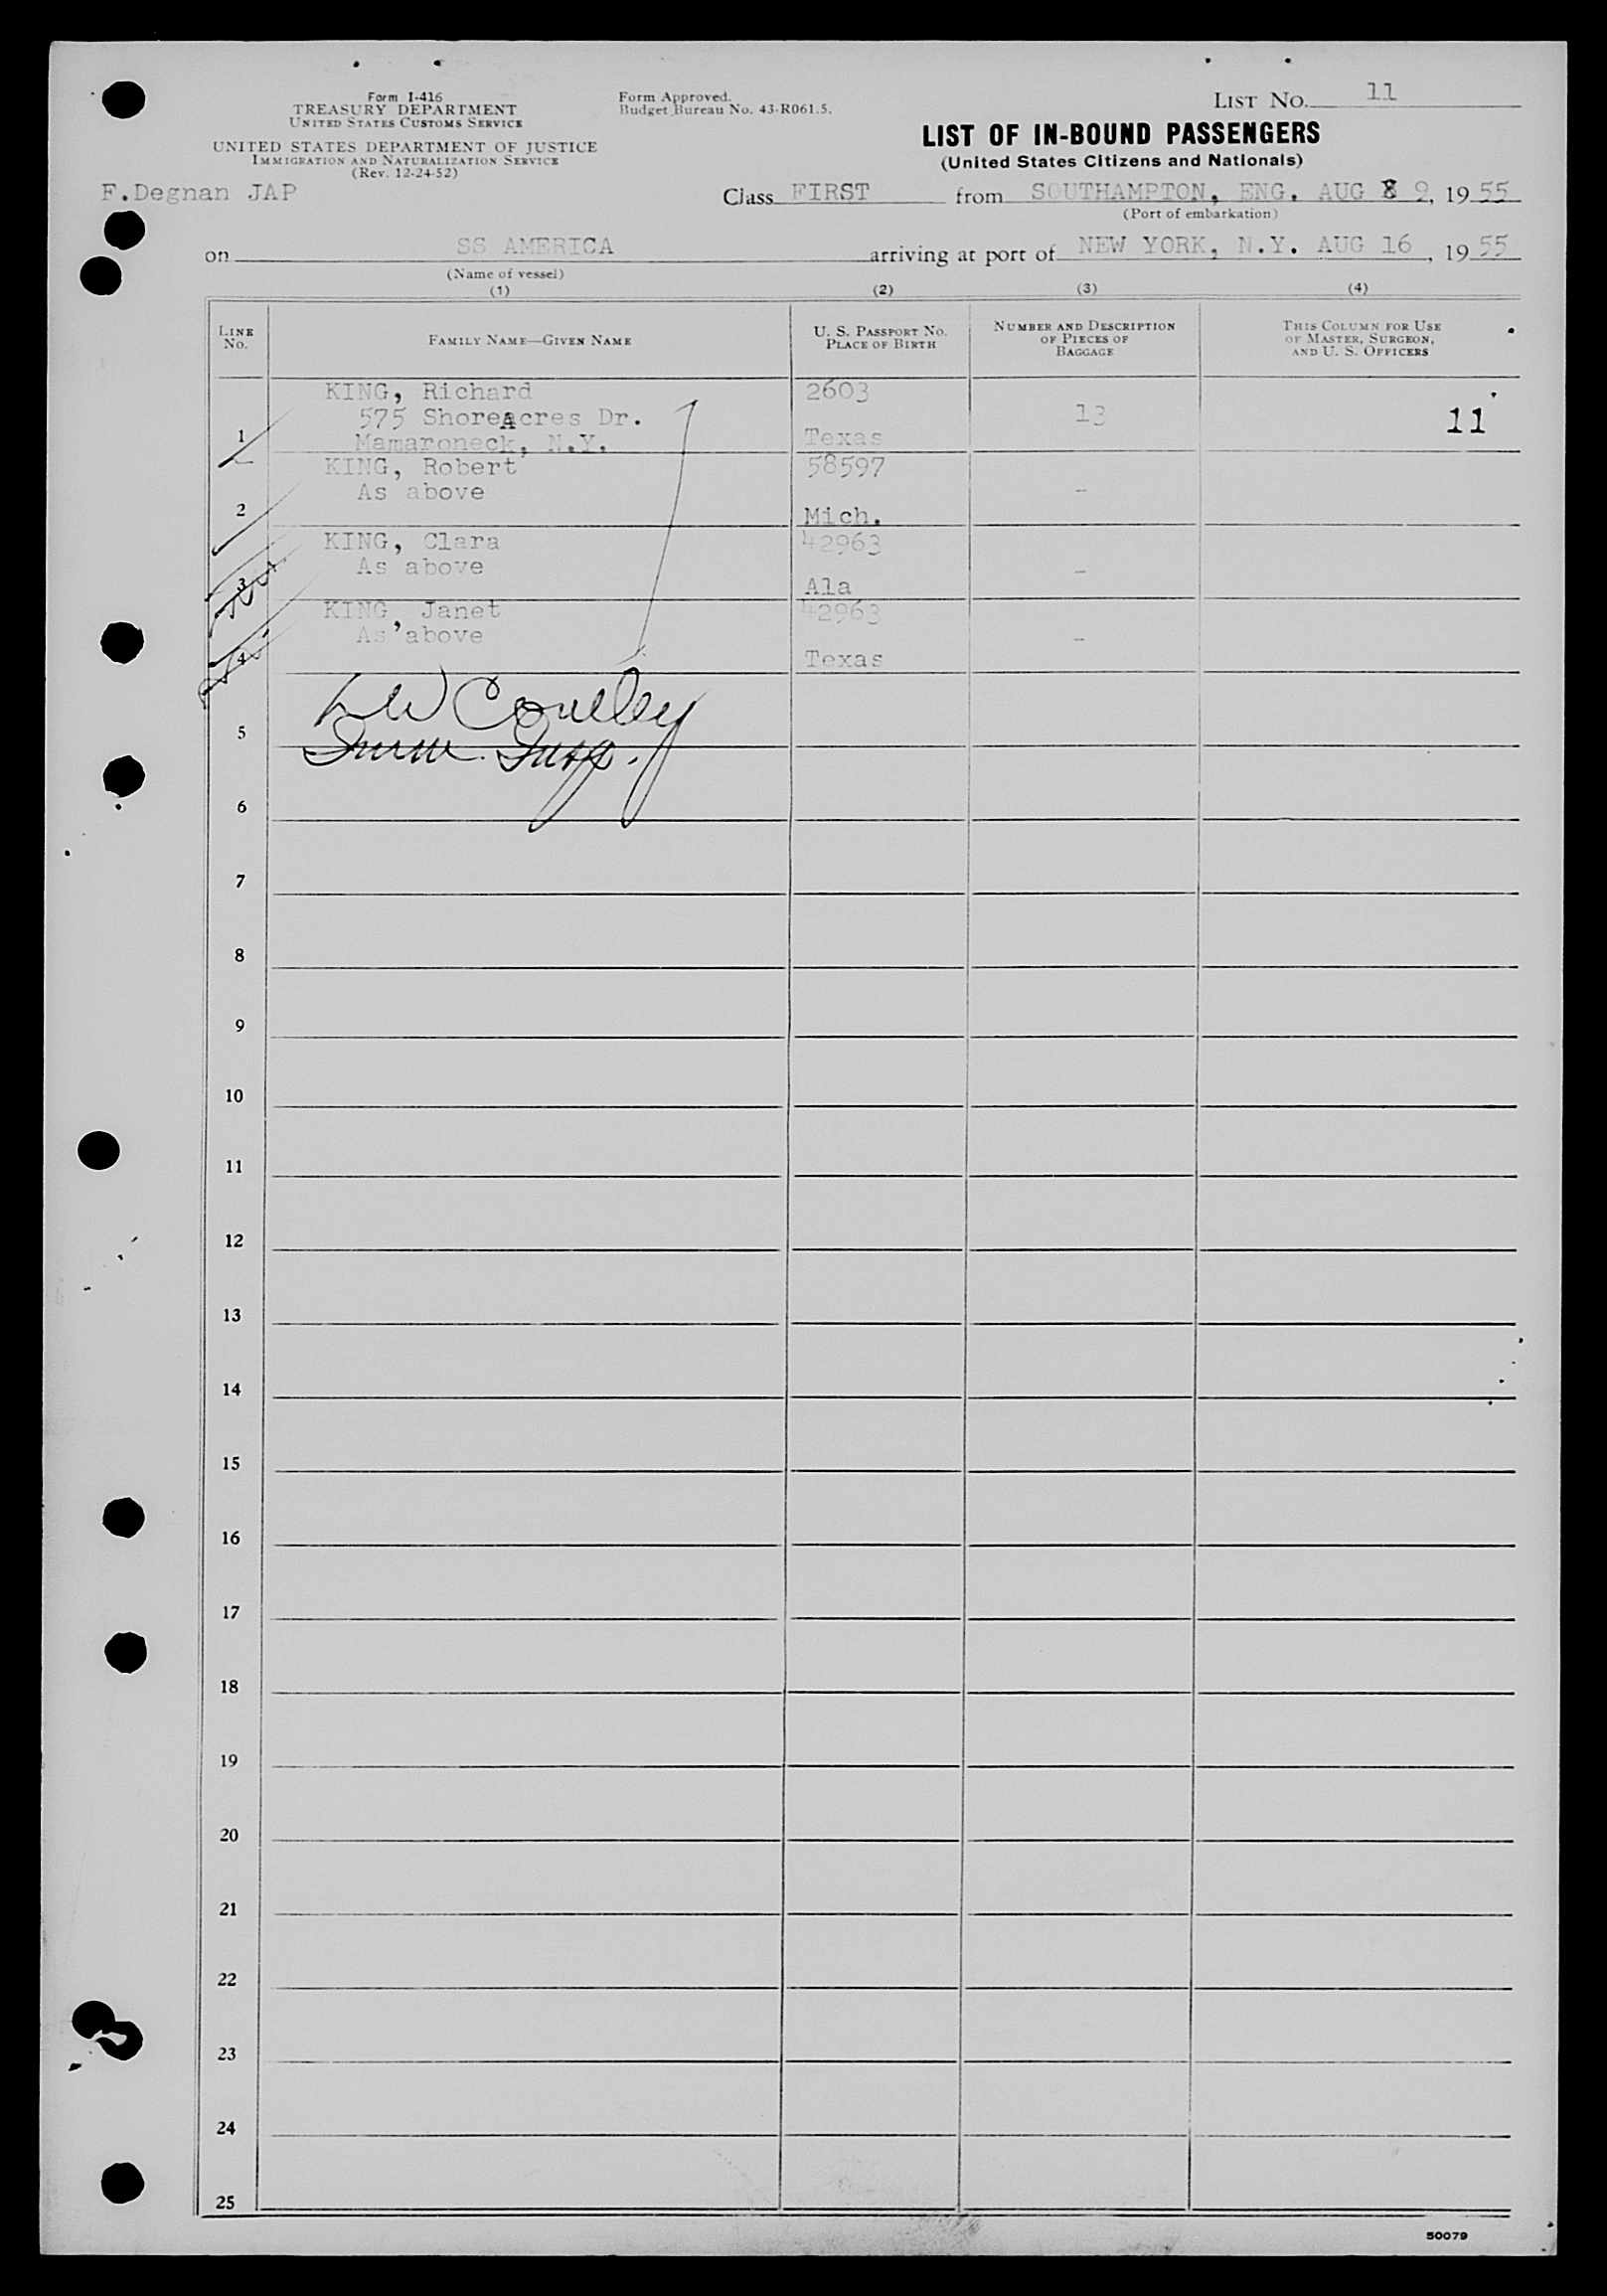 Form I-416
TREASURY DEPARTMENT
UNITED STATES CUSTOMS SERVICE
UNITED STATES DEPARTMENT OF JUSTICE
IMMIGRATION AND NATURALIZATION SERVICE
(Rev. 12-24-52)
Form Approved.
Budget Bureau No. 43-R061.5.
LIST NO. 11
LIST OF IN-BOUND PASSENGERS
(United States Citizens and Nationals)
F.Degnan JAP
Class FIRST from SOUTHAMPTON, ENG. AUG 9, 1955
(Port of embarkation)
on SS AMERICA arriving at port of NEW YORK, N.Y. AUG 16, 1955
(Name of vessel)
(1) (2) (3) (4)
LINE NO. FAMILY NAME—GIVEN NAME U. S. PASSPORT NO. PLACE OF BIRTH NUMBER AND DESCRIPTION OF PIECES OF BAGGAGE THIS COLUMN FOR USE OF MASTER, SURGEON, AND U. S. OFFICERS
KING, Richard 2603
575 ShoreAcres Dr. 13 11
1 Mamaroneck, N.Y. Texas
KING, Robert 58597
As above -
2 Mich.
KING, Clara 42963
As above -
3 Ala
KING, Janet 42963
As above -
4 Texas
5
6
7
8
9
10
11
12
13
14
15
16
17
18
19
20
21
22
23
24
25
50079